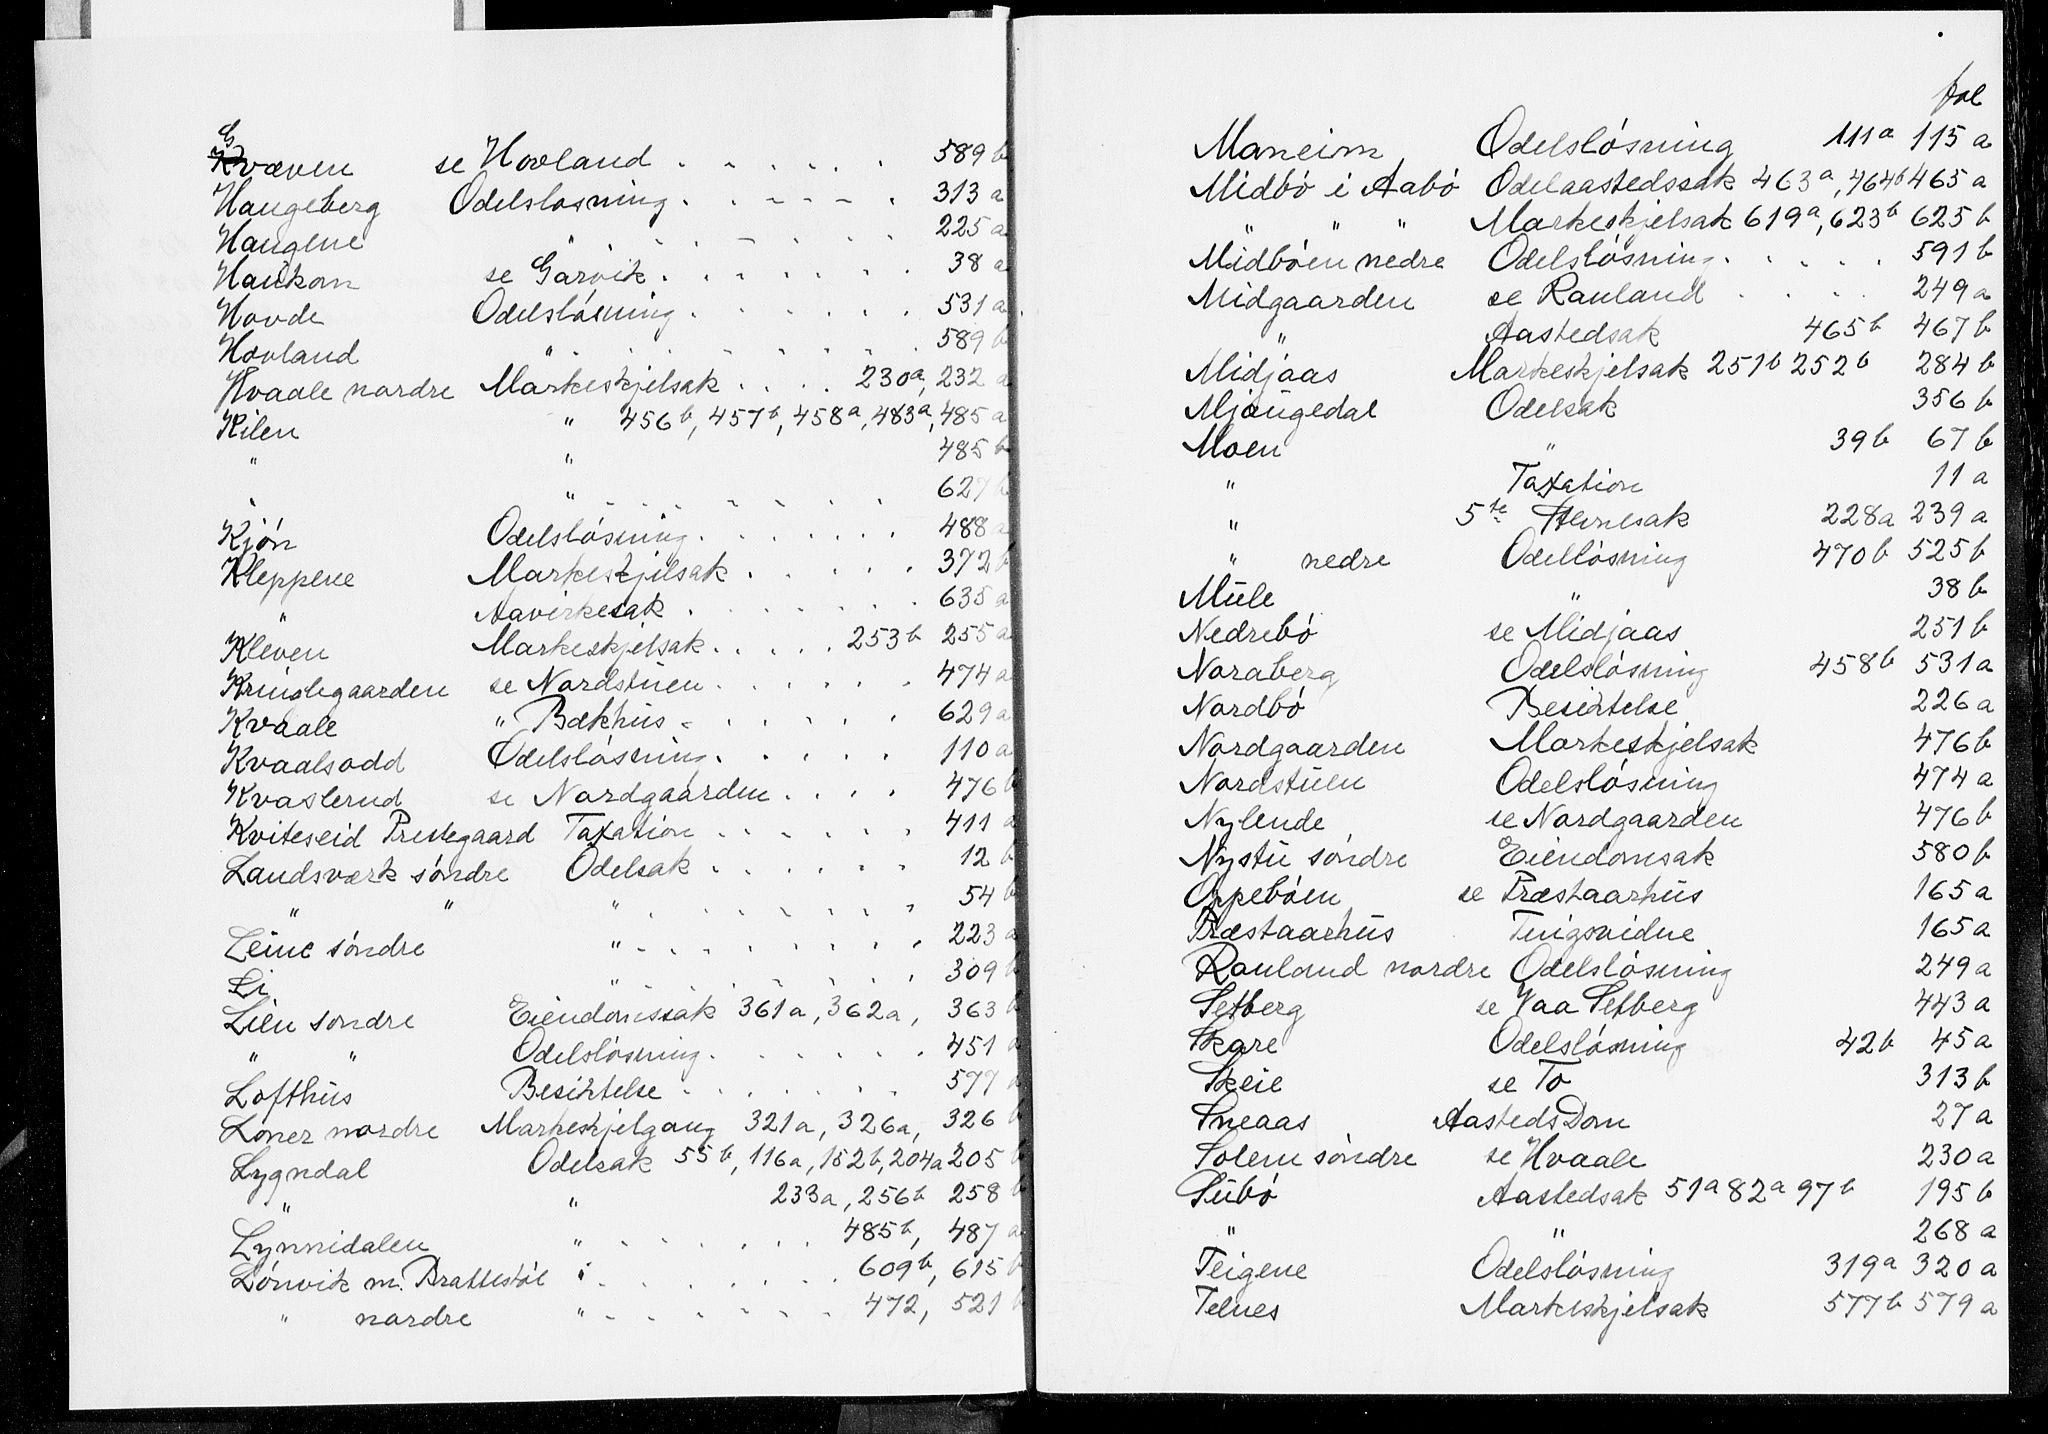 Gvæven se Hovland . . . . . . 589 b
Haugeberg Odelsløsning . . . . . . 313 a
Haugene " . . . . . . 225 a
Haukom se Garvik . . . . . . 38 a
Hovde Odelsløsning . . . . . . 531 a
Hovland " . . . . . . 589 b
Hvaale nordre Markeskjelsak . . . . 230a, 232 a
Kilen " 456 b, 457 b, 458 a, 483 a, 485 a
" " 485 b
" " . . . . . . 627 b
Kjøn Odelsløsning . . . . . . 488 a
Kleppene Markeskjelsak . . . . . 372 b
" Aavirkesak . . . . . . 635 a
Kleven Markeskjelsak . . . . . 253 b 255 a
Kringlegaarden se Nordstuen . . . . . . 474 a
Kvaale " Bækhus . . . . . . 629 a
Kvaalsodd Odelsløsning . . . . . 110 a
Kvaslerud se Nordgaarden . . . . 476 b
Kviteseid Prestegaard Taxation . . . . . . 411 a
Landsværk søndre Odelsak . . . . . . 12 b
" " " . . . . . . . 54 b
Leine søndre " . . . . . . . 223 a
Li " . . . . . . 309 b
Lien søndre Eiendomssak 361a, 362a, 363 b
" " Odelsløsning . . . . . . 451 a
Lofthus Besiktelse . . . . . . 577
Loner nordre Markeskjelgang 321a, 326a, 326 b
Lygndal Odelsak 55 b, 116a, 152 b, 204a 205 b
" " 233a, 256 b 258 b
Lynnidalen " . . . . . . 485 b, 487 a
Lønvik m. Brattestøl " . . . . . . 609 b, 615 b
" nordre " . . . . . . 472, 521 b
fol
Maneim Odelsløsning 111 a 115 a
Midbø i Aabø Odelaastedssak 463 a, 464 b 465 a
" " " Markeskjelsak 619 a, 623 b 625 b
Midbøen nedre Odelsløsning . . . . . 591 b
Midgaarden se Rauland . . . . 249 a
" Aastedsak 465 b 467 b
Midjaas Markeskjelsak 251 b 252 b 284 b
Mjaugedal Odelsak 356 b
Moen " 39 b 67 b
" Taxation 11 a
" 5te Stevnesak 228a 239 a
" nedre Odelløsning 470 b 525 b
Mule " 38 b
Nedrebø se Midjaas 251 b
Noraberg Odelsløsning 458 b 531 a
Nordbø Besiktelse 226 a
Nordgaarden Markeskjelsak 476 b
Nordstuen Odelsløsning 474 a
Nylende se Nordgaarden 476 b
Nystu søndre Eiendomsak 580 b
Oppebøen se Præstaarhus 165 a
Præstaarhus Tingsvidne 165 a
Rauland nordre Odelsløsning 249 a
Setberg se Vaa Setberg 443 a
Skare Odelsløsning 42 b 45 a
Skeie se To 313 b
Sneaas AastedsDom 27 a
Solem søndre se Hvaale 230 a
Subø Aastedsak 51 a 82 a 97 b 195 b
" " 268 a
Teigene Odelsløsning 319 a 320 a
Telnes Markeskjelsak 577 b 579 a